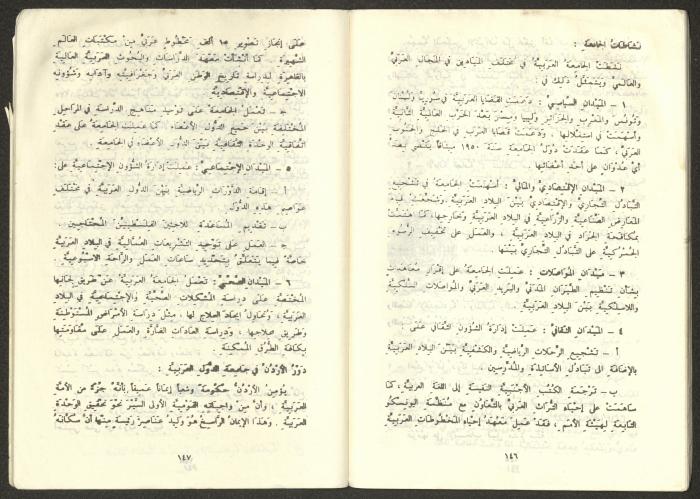 نشاطات الجامعة :
نشطت الجامعة العربية في مختلف الميادين في المجال العربي
والعالمي ويتمثل ذلك في :
١ – الميدان السياسي : دعمت القضايا العربية في سورية ولبنان
وتونس والمغرب والجزائر وليبيا ومصر بعد الحرب العالمية الثانية،
وأسهمت في استقلالها ، ودعمت قضايا العرب في الخليج والجنوب
العربي، كما عقدت دول الجامعة سنة ١٩٥٠ ميثاقاً يقضي بصد
أي عدوان على أحد أعضائها .
٢ – الميدان الاقتصادي والمالي : أسهمت الجامعة في تشجيع
التبادل التجاري والاقتصادي بين البلاد العربية وشجعت قيام
المعارض الصناعية والزراعية في البلاد العربية وخارجها، كما اهتمت
بمكافحة الجراد في البلاد العربية ، والعمل على تخفيف الرسوم
الجمركية على التبادل التجاري بينها .
٣ – ميدان المواصلات : عملت الجامعة على إقرار معاهدات
بشأن تنظيم الطيران المدني والبريد العربي والمواصلات السلكية
واللاسلكية بين البلاد العربية
٤ – الميدان الثقافي : عملت إدارة الشؤون الثقافي على :
أ – تشجيع الرحلات الرياضية والكشفية بين البلاد العربية
بالإضافة الى تبادل الأساتذة والمدرسين .
ب – ترجمة الكتب الأجنبية النفيسة إلى اللغة العربية، كما
ساهمت على إحياء التراث العربي بالتعاون مع منظمة اليونسكو
التابعة لهيئة الأمم ، فقد عمل معهد إحياء المخطوطات العربية
١٤٦
على إنجاز تصوير ١٥ ألف مخطوط عربي من مكتبات العالم
الشهيرة . كما أنشأت معهد الدراسات والبحوث العربية العالية
بالقاهرة لدراسة تاريخ الوطن العربي وجغرافيته وآدابه وشؤونه
الاجتماعية والاقتصادية
ج – تعمل الجامعة على توحيد مناهج الدراسة في المراحل
المختلفة بين جميع الدول الأعضاء . كما عملت الجامعة على عقد
اتفاقية الوحدة الثقافية بين الدول الأعضاء في الجامعة .
٥ – الميدان الإجتماعي : عملت إدارة الشؤون الإجتماعية على:
أ – إقامة الدورات الرياضية بين الدول العربية في مختلف
عواصم هذه الدول
ب – تقديم المساعدة للاجئين الفلسطينيين المحتاجين .
ج – العمل على توحيد التشريعات العمالية في البلاد العربية
خاصة فيما يتعلق بتحديد ساعات العمل والراحة الاسبوعية .
٦ – الميدان الصحي : تعمل الجامعة العربية عن طريق لجانها
المختصة على دراسة المشكلات الصحية والاجتماعية في البلاد
العربية ، وتحاول إيجاد العلاج لها ، مثل دراسة الأمراض المستوطنة
وطريق علاجها ، ودراسة العادات الضارة والعمل على مقاومتها
بكافة الطرق الممكنة .
دور الأردن في جامعة الدول العربية :
يؤمن الأردن حكومة وشعباً إيماناً عميقاً بأنه جزء من الأمة
العربية ، وأن من واجباته القومية الأولى السير نحو تحقيق الوحدة
العربية . وهذا الإيمان الراسخ هو وليد عناصر رئيسة منها أن سكانه
١٤٧